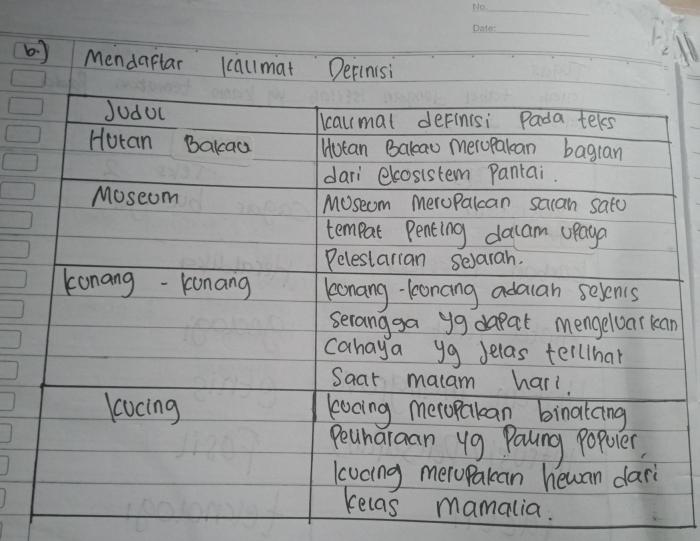 No.
Date:
b.) Mendaftar Kalimat Definisi
Judul
Kalimat definisi Pada teks
Hutan Bakau
Hutan Bakau Merupakan bagian
dari ekosistem Pantai.
Museum
Museum Merupakan salah satu
tempat Penting dalam upaya
Pelestarian Sejarah.
kunang - kunang
kunang-kunang adalah sejenis
serangga yg dapat mengeluarkan
Cahaya yg Jelas terlihat
Saat malam hari.
kucing
kucing merupakan binatang
Peliharaan yg Paling Populer,
kucing merupakan hewan dari
kelas mamalia.